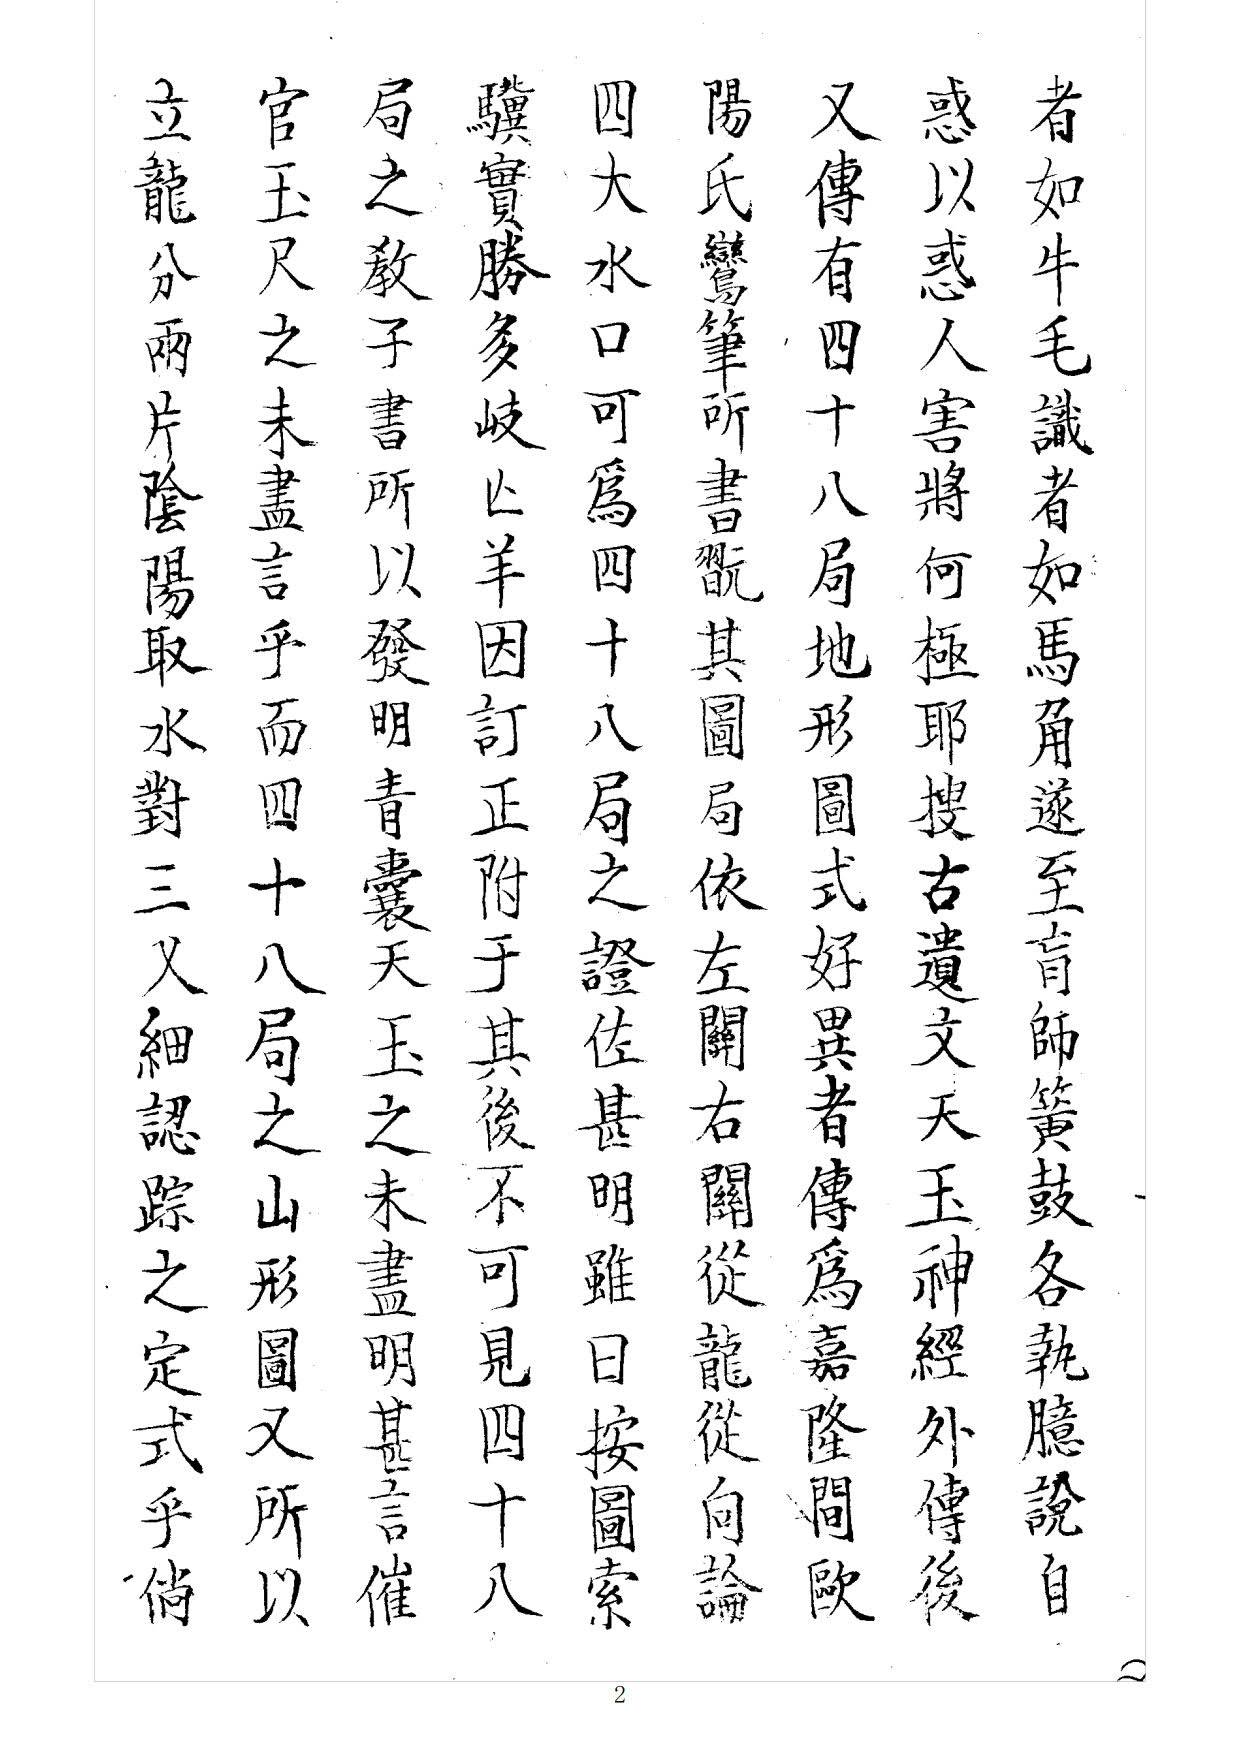 者如牛毛識者如馬角遂至盲師簧鼓各執臆說自
惑以惑人害將何極耶搜古遺文天玉神經外傳後
又傳有四十八局地形圖式好異者傳爲嘉隆間歐
陽氏鸞筆所書翫其圖局依左關右關從龍從向論
四大水口可爲四十八局之證佐甚明雖曰按圖索
驥實勝多岐亡羊因訂正附于其後不可見四十八
局之教子書所以發明青囊天玉之未盡明甚言催
官玉尺之未盡言乎而四十八局之山形圖又所以
立龍分兩片陰陽取水對三叉細認踪之定式乎倘
2